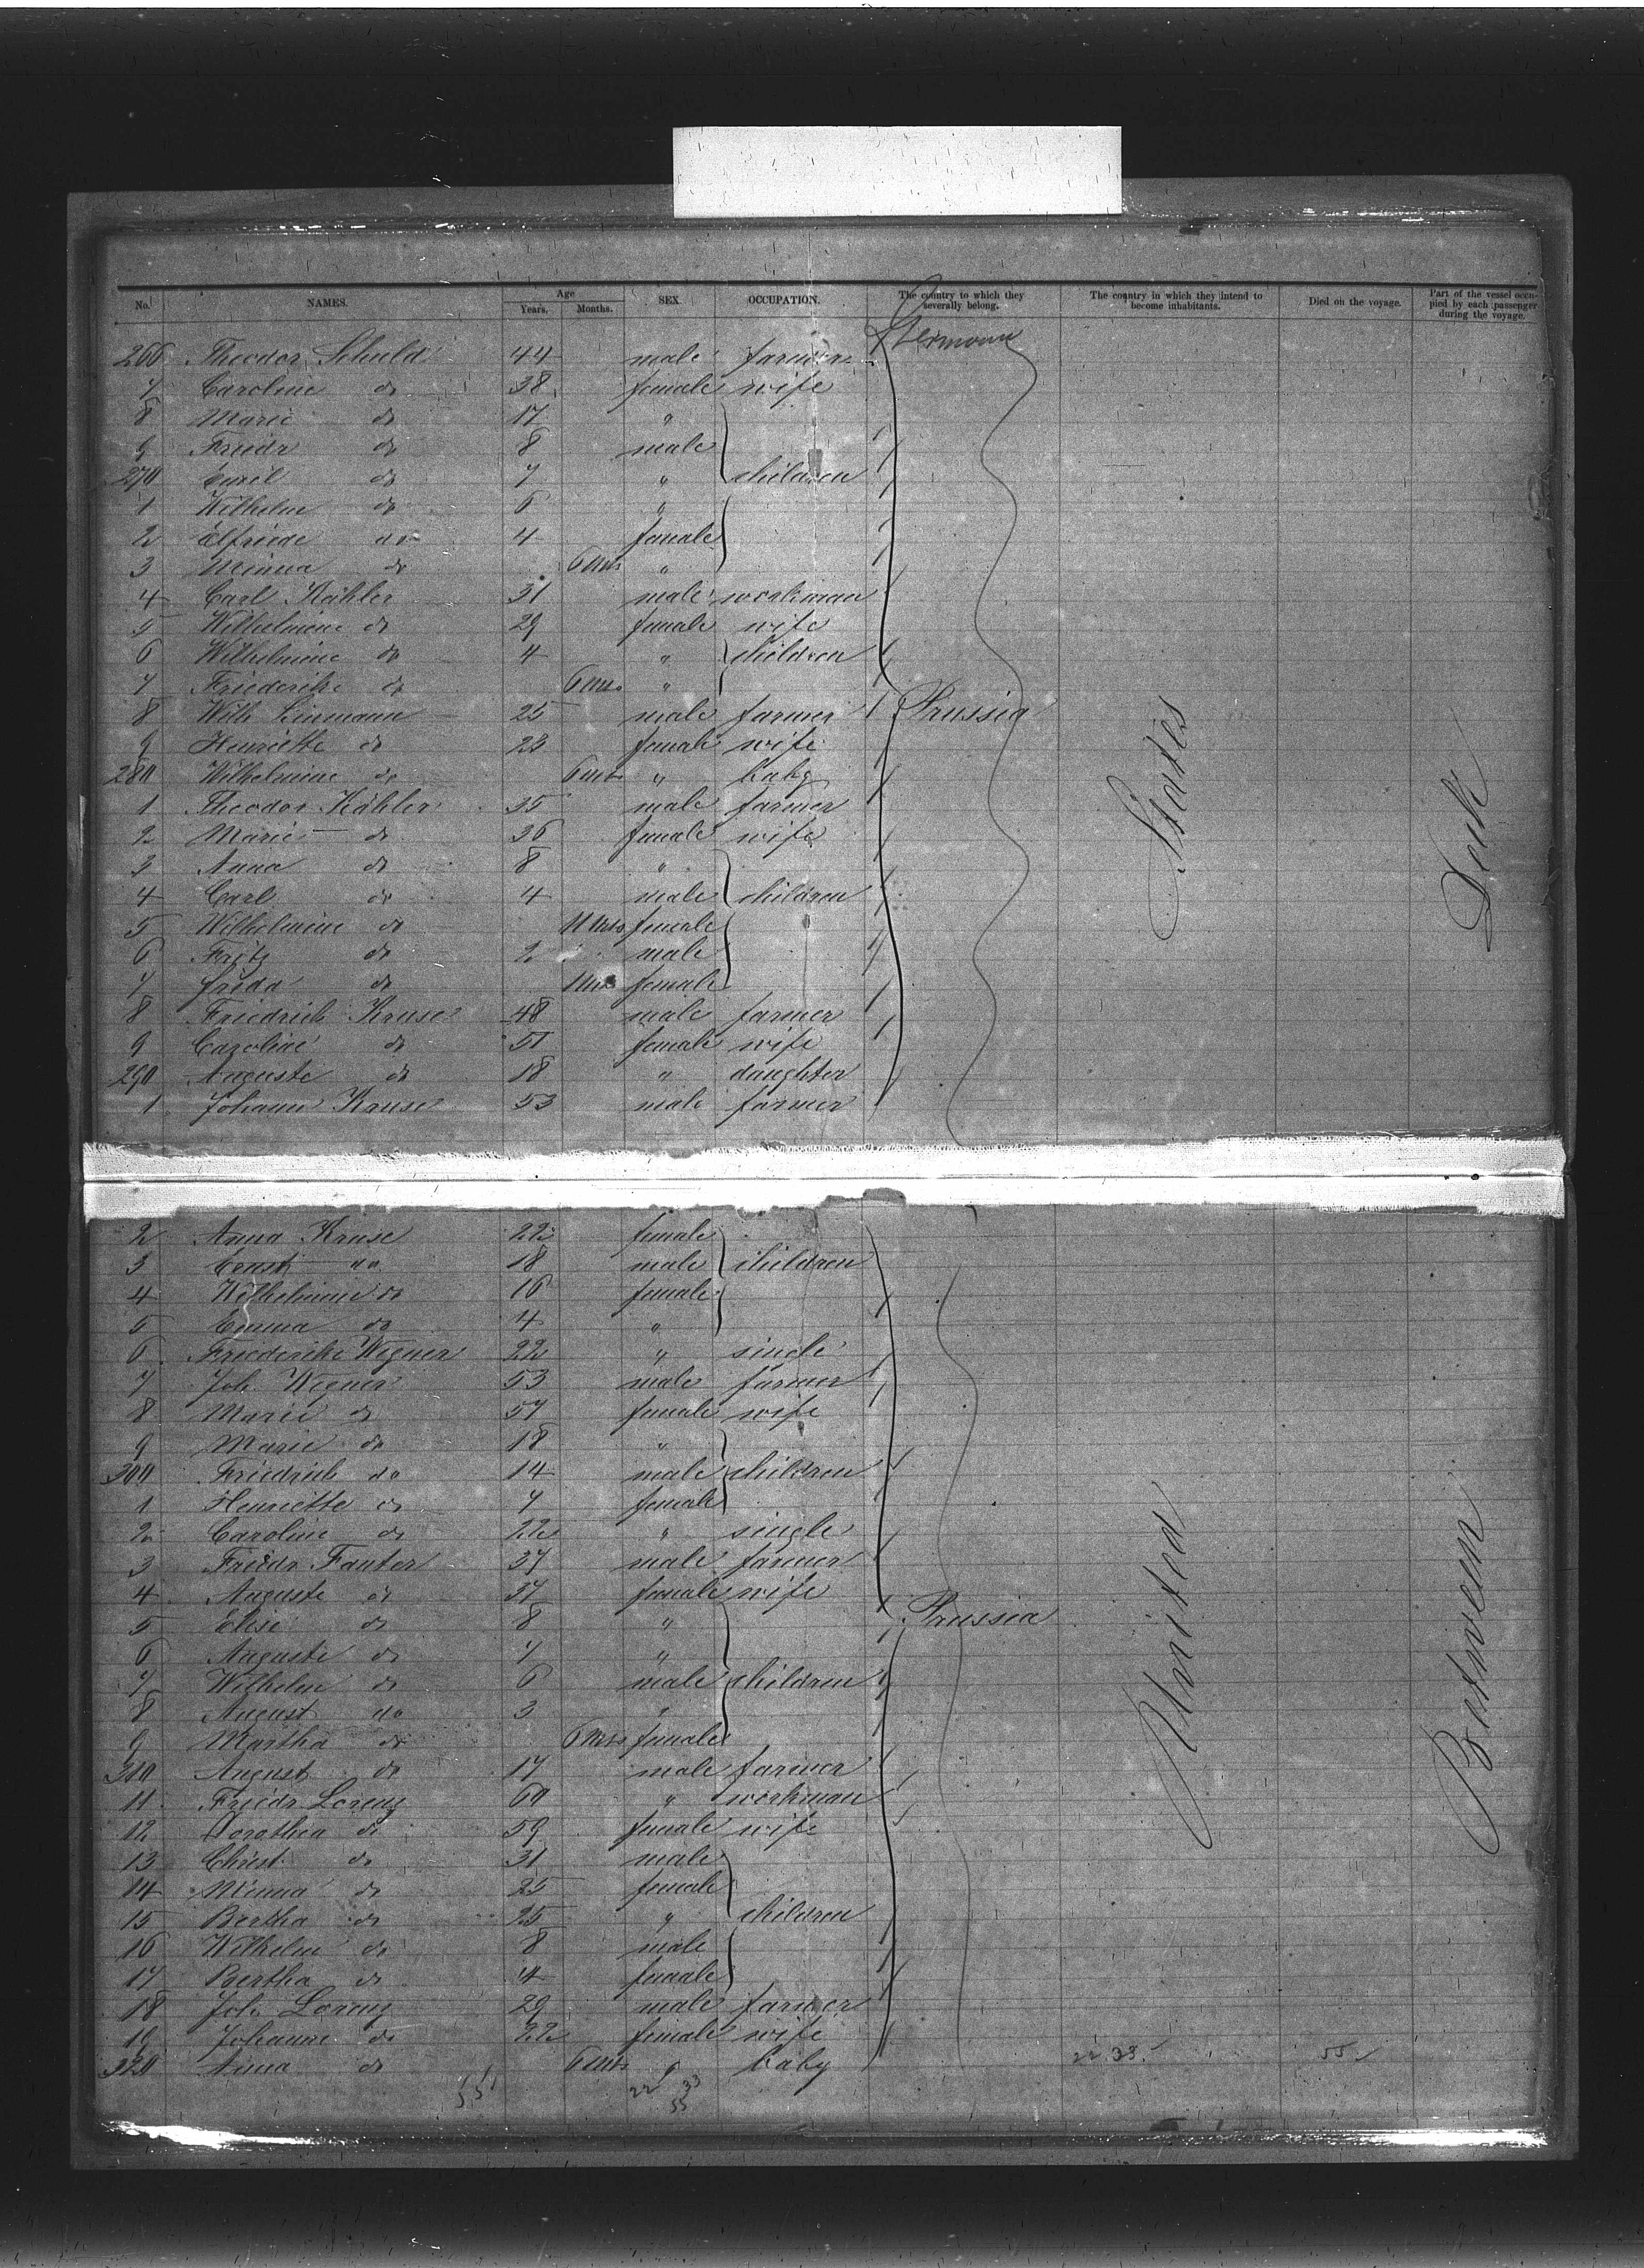 No. NAMES. Age Years. Months. SEX. OCCUPATION. The country to which they severally belong. The country in which they intend to become inhabitants. Died on the voyage. Part of the vessel occupied by each passenger during the voyage.
Germany
266 Theodor Schuld 44 male farmer
7 Caroline do 38 female wife
8 Marie do 17 "
9 Friedr do 8 male
270 Emil do 7 " children
1 Wilhelm do 6 "
2 Elfriede do 4 female
3 Minna do 6 mts "
4 Carl Kähler 31 male workman
5 Wilhelmine do 29 female wife
6 Wilhelmine do 4 " children
7 Friederike do 6 mts "
8 Wilh Linmann 25 male farmer Prussia
9 Henriette do 23 female wife
280 Wilhelmine do 6 mts " baby
1 Theodor Kähler 35 male farmer
2 Marie do 36 female wife
3 Anna do 8 "
4 Carl do 4 male children
5 Wilhelmine do 11 mts female
6 Fritz do 2 male
7 Frida do 1 mts female
8 Friedrich Kruse 48 male farmer
9 Caroline do 51 female wife
290 Auguste do 18 " daughter
1 Johann Kruse 53 male farmer
2 Anna Kruse 22 female
3 Ernst do 18 male children
4 Wilhelmine do 16 female
5 Emma do 4 "
6 Friederike Wegner 22 " single
7 Joh. Wegner 53 male farmer
8 Marie do 57 female wife
9 Marie do 18 "
300 Friedrich do 14 male children
1 Henriette do 7 female
2 Caroline do 22 " single
3 Friedr Fanter 37 male farmer
4 Auguste do 37 female wife
5 Elise do 8 " Prussia
6 Auguste do 7 "
7 Wilhelm do 6 male children
8 August do 3 "
9 Martha do 6 mts female
310 August do 17 male farmer
11 Friedr Lorenz 60 " workman
12 Dorothea do 59 female wife
13 Christ. do 31 male
14 Minna do 25 female
15 Bertha do 25 " children
16 Wilhelm do 8 male
17 Bertha do 4 female
18 Joh. Lorenz 29 male farmer
19 Johanne do 22 female wife
320 Anna do 6 mts " baby
22 33 55
55 22 33
55
United States
Between Deck